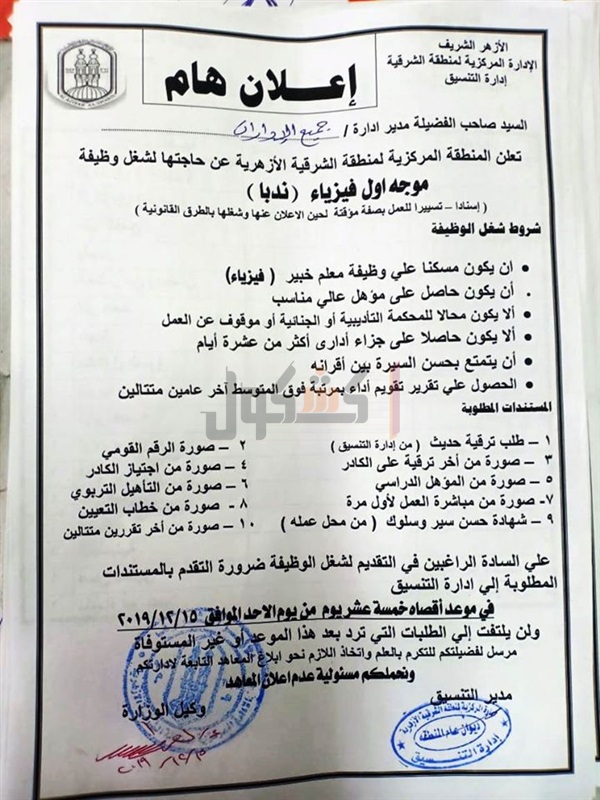 الأزهر الشريف
الإدارة المركزية لمنطقة الشرقية
إدارة التنسيق
إعلان هام
السيد صاحب الفضيلة مدير ادارة / جميع الإدارات
تعلن المنطقة المركزية لمنطقة الشرقية الأزهرية عن حاجتها لشغل وظيفة
موجه اول فيزياء ( ندبا )
( إسنادا – تسييرا للعمل بصفة مؤقتة لحين الاعلان عنها وشغلها بالطرق القانونية )
شروط شغل الوظيفة
• ان يكون مسكنا علي وظيفة معلم خبير ( فيزياء)
. أن يكون حاصل على مؤهل عالي مناسب
• ألا يكون محالا للمحكمة التأديبية أو الجنائية أو موقوف عن العمل
• ألا يكون حاصلا على جزاء أدارى أكثر من عشرة أيام
• أن يتمتع بحسن السيرة بين أقرانه
• الحصول علي تقرير تقويم أداء بمرتبة فوق المتوسط آخر عامين متتالين
المستندات المطلوبة
١ – طلب ترقية حديث ( من إدارة التنسيق )
٢ – صورة الرقم القومي
٣ – صورة من أخر ترقية على الكادر
٤ – صورة من اجتياز الكادر
٥ – صورة من المؤهل الدراسي
٦ – صورة من التأهيل التربوي
٧- صورة من مباشرة العمل لأول مرة
٨ - صورة من خطاب التعيين
٩ – شهادة حسن سير وسلوك ( من محل عمله )
١٠ – صورة من أخر تقررين متتالين
علي السادة الراغبين في التقديم لشغل الوظيفة ضرورة التقدم بالمستندات
المطلوبة إلي ادارة التنسيق
في موعد أقصاه خمسة عشر يوم من يوم الاحد الموافق ٢٠١٩/١٢/١٥
ولن يلتفت إلي الطلبات التي ترد بعد هذا الموعد أو غير المستوفاة
مرسل لفضيلتكم للتكرم بالعلم واتخاذ اللازم نحو ابلاغ المعاهد التابعة لادارتكم
ونعملكم مسئولية عدم اعلان المعاهد
مدير التنسيق
وكيل الوزارة
ديوان عام المنطقة
إدارة التنسيق
كشكول